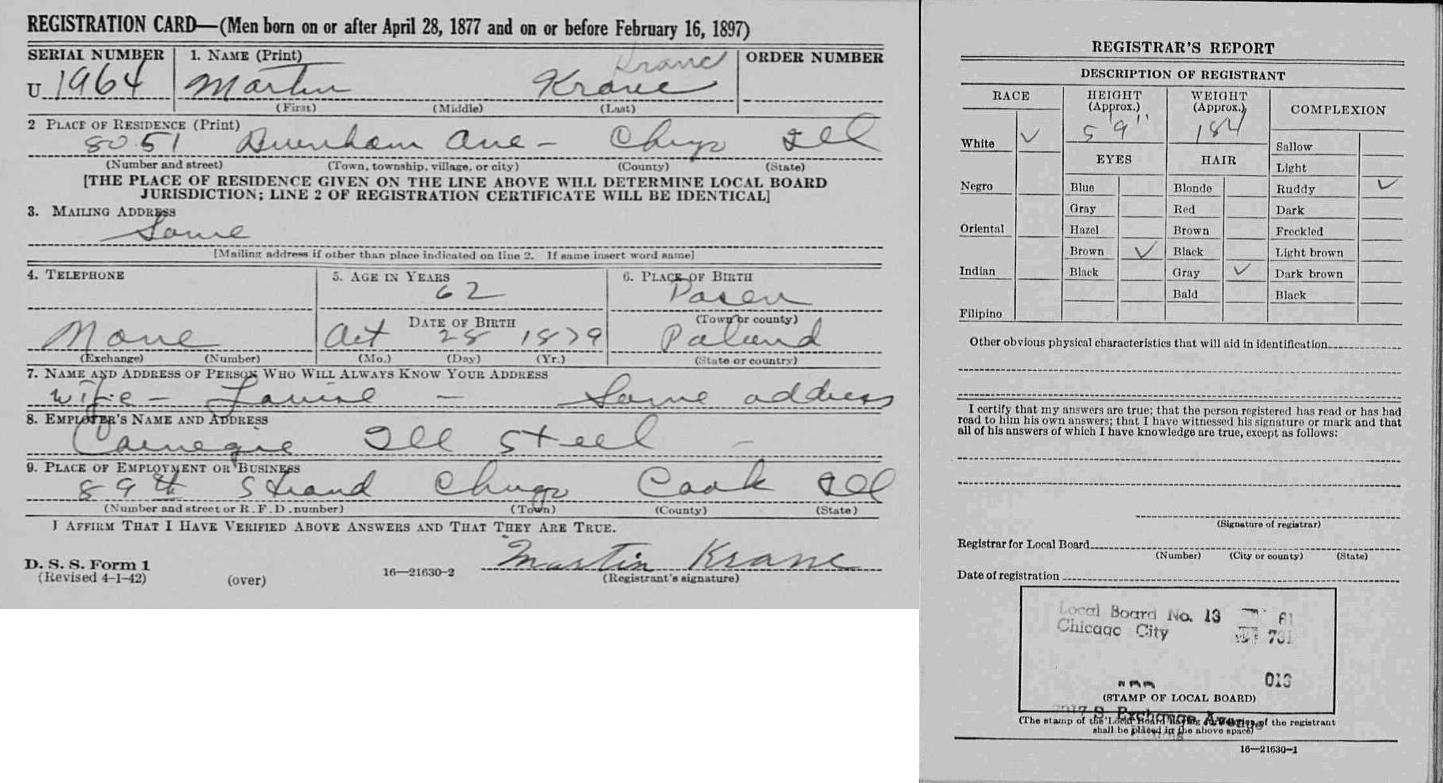 REGISTRATION CARD—(Men born on or after April 28, 1877 and on or before February 16, 1897)
SERIAL NUMBER 1. NAME (Print) Kranc ORDER NUMBER
U 1964 Martin Kranc
(First) (Middle) (Last)
2 PLACE OF RESIDENCE (Print)
8051 Ave - Chgo Ill
(Number and street) (Town, township, village, or city) (County) (State)
[THE PLACE OF RESIDENCE GIVEN ON THE LINE ABOVE WILL DETERMINE LOCAL BOARD
JURISDICTION; LINE 2 OF REGISTRATION CERTIFICATE WILL BE IDENTICAL]
3. MAILING ADDRESS
Same
[Mailing address if other than place indicated on line 2. If same insert word same]
4. TELEPHONE 5. AGE IN YEARS 6. PLACE OF BIRTH
62 Posen
DATE OF BIRTH (Town or county)
None Oct 28 1879 Poland
(Exchange) (Number) (Mo.) (Day) (Yr.) (State or country)
7. NAME AND ADDRESS OF PERSON WHO WILL ALWAYS KNOW YOUR ADDRESS
Wife - Louise - Same address
8. EMPLOYER'S NAME AND ADDRESS
Carnegie Ill Steel -
9. PLACE OF EMPLOYMENT OR BUSINESS
89th Strand Chgo Cook Ill
(Number and street or R. F. D. number) (Town) (County) (State)
I AFFIRM THAT I HAVE VERIFIED ABOVE ANSWERS AND THAT THEY ARE TRUE.
Martin Kranc
D. S. S. Form 1
(Revised 4-1-42) (over) 16—21630-2 (Registrant's signature)
REGISTRAR'S REPORT
DESCRIPTION OF REGISTRANT
RACE HEIGHT (Approx.) WEIGHT (Approx.) COMPLEXION
5 9" 184
White ✓ Sallow
EYES HAIR Light
Negro Blue Blonde Ruddy ✓
Gray Red Dark
Oriental Hazel Brown Freckled
Brown ✓ Black Light brown
Indian Black Gray ✓ Dark brown
Bald Black
Filipino
Other obvious physical characteristics that will aid in identification
I certify that my answers are true; that the person registered has read or has had
read to him his own answers; that I have witnessed his signature or mark and that
all of his answers of which I have knowledge are true, except as follows:
(Signature of registrar)
Registrar for Local Board
(Number) (City or county) (State)
Date of registration
Local Board No. 13 61
Chicago City 731
013
(STAMP OF LOCAL BOARD)
S. Exchange Avenue
(The stamp of the Local Board having of the registrant
shall be placed in the above space)
16—21630-1